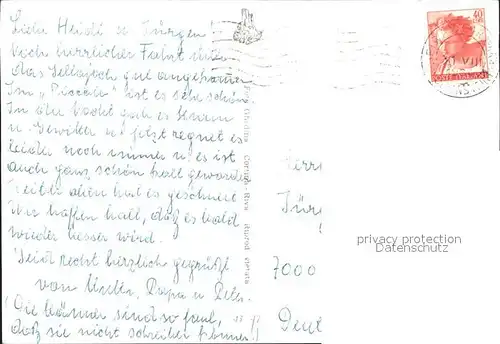 Liebe Heidi u. Jürgen!
Nach herrlicher Fahrt über
das Sellajoch gut angekommen.
Im "Piccolo" ist es sehr schön.
In der Nacht gab es Sturm
u. Gewitter u. jetzt regnet es
leider noch immer u. es ist
auch ganz schön kalt geworden.
hat es geschneit
Wir hoffen halt, daß es bald
wieder besser wird.
Seid recht herzlich gegrüßt
von Papa u.
(Die Männer sind so faul,
daß sie nicht schreiben können!!)
Herrn
Jür
7000
Deut
40
POSTE ITALIANE
VIII
privacy protection
Datenschutz